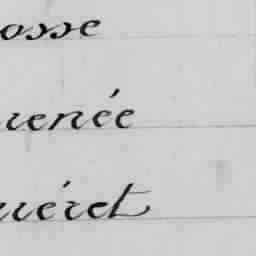 osse
uenée
uéret